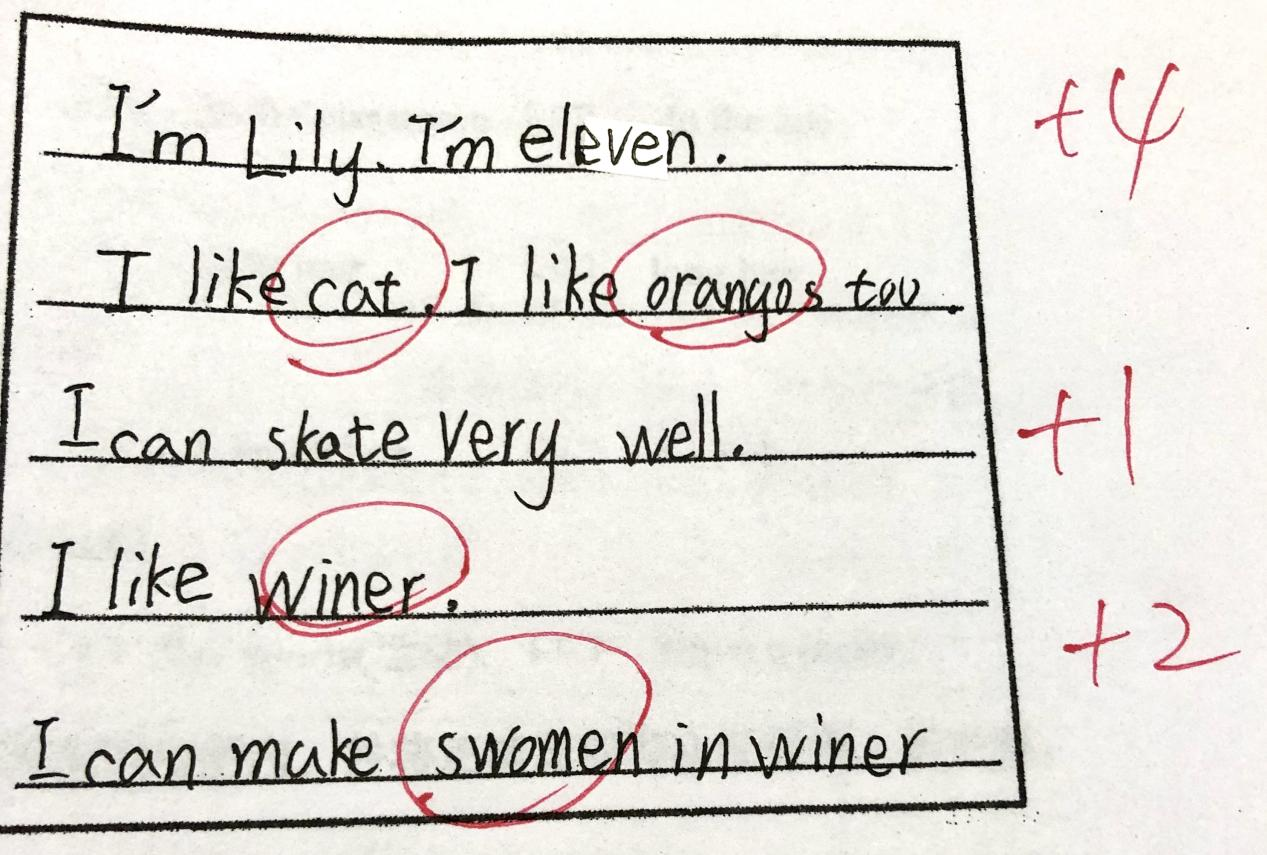 I'm Lily. I'm eleven. +4
I like cat. I like orangos too.
I can skate very well. +1
I like winer.
+2
I can make swomen in winer